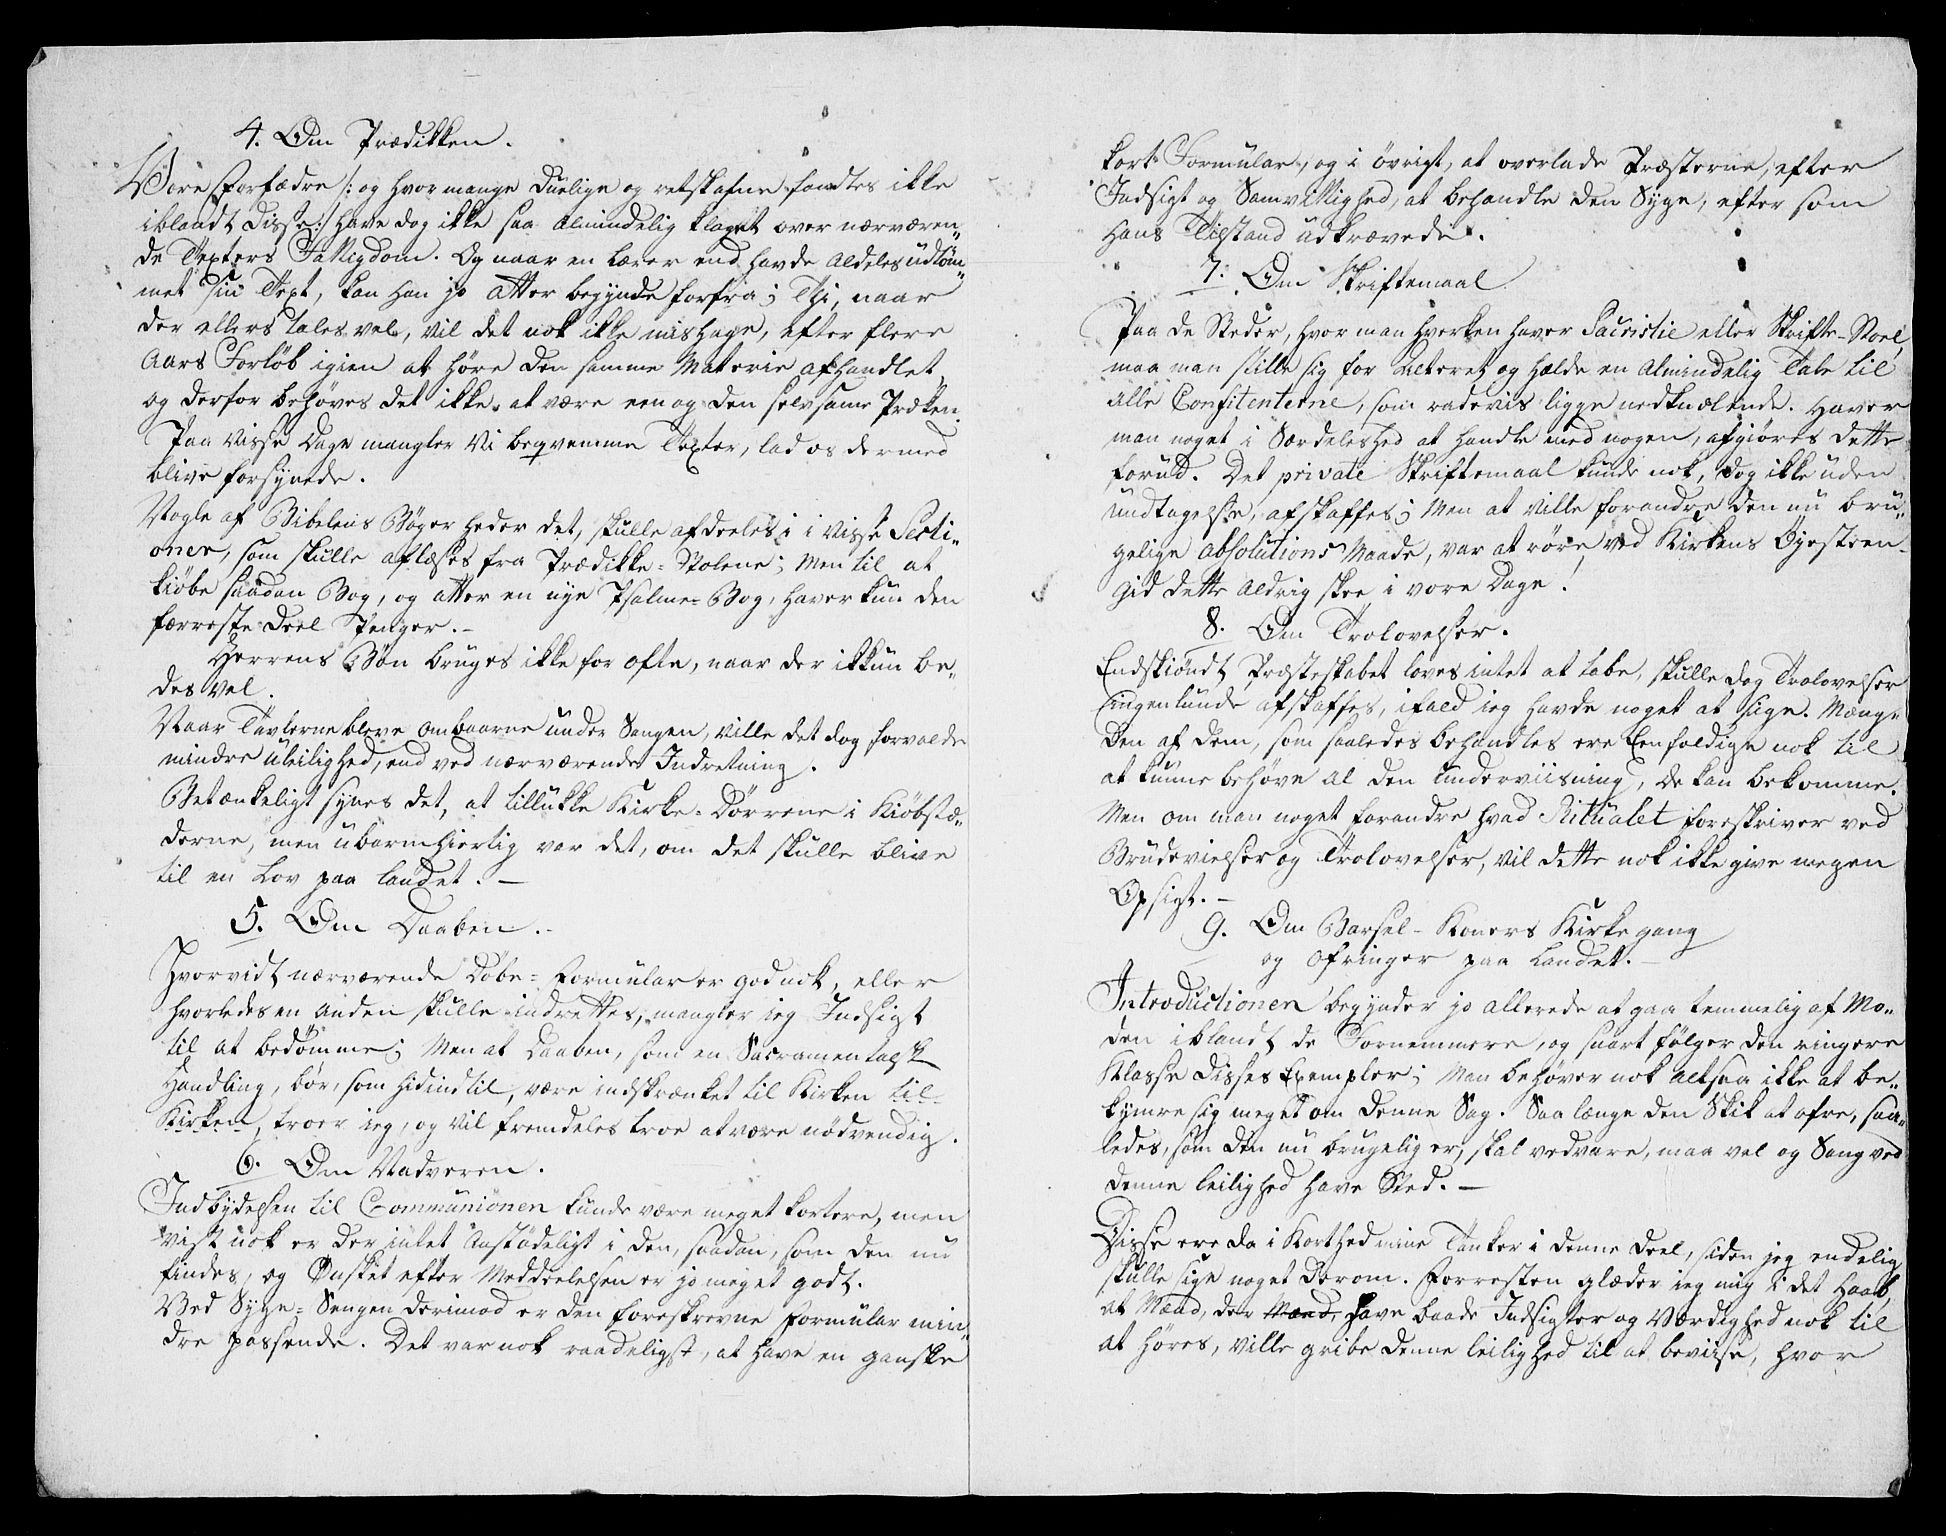 4. Om Prædikken.
Vore Forfædre /: og hvor mange duelige og retskafne fandtes ikke
iblandt Disse :/ have dog ikke saa almindelig klaget over nærværen„
de Texters Fattigdom. Og naar en Lærer end havde aldeles udtøm„
met sin Text, kan han jo atter begynde forfra; Thi, naar
der ellers tales vel, vil det nok ikke mishage, efter flere
Aars Forløb igien at høre den samme Materie afhandlet,
og derfor behøves det ikke at være een og den selvsame Præken.
Paa visse Dage mangler vi beqvemme Texter, lad os dermed
blive forsynede.
Nogle af Bibelens Bøger heder det, skulle afdeeles i i visse Secti„
oner, som skulle aflæses fra Prædikke-Stolene; Men til at
kiøbe saadan Bog, og atter en nye Psalme-Bog, haver kun den
færreste Deel Penger. –
Herrens Bøn bruges ikke for ofte, naar der ikkun be„
des vel.
Naar Tavlerne bleve ombaarne under Sangen, ville det dog forvolde
mindre uleilighed, end ved nærværende Indretning.
Betænkeligt synes det, at tillukke Kirke-Dørrene i Kiøbstæ„
derne, men ubarmhiertig var det, om det skulle blive
til en Lov paa landet. –
5. Om Daaben. –
Hvorvidt nærværende Døbe-Formular er god nok, eller
hvorledes en anden skulle indrettes, mangler jeg Indsigt
til at bedømme; Men at Daaben, som en Sacramentalsk
Handling, bør, som hidindtil, være indskrænket til Kirken til
Kirken, troer jeg, og vil fremdeles troe at være nødvendig.
6. Om Nadveren.
Indbydelsen til Communionen kunde være meget kortere, men
vist nok er der intet Anstødeligt i den, saadan, som den nu
findes, og Ønsket efter Meddeelelsen er jo meget godt.
Ved Syge-Sengen derimod er den foreskrevne Formular min„
dre passende. Det var nok raadeligst, at have en ganske
kort Formular, og i øvrigt, at overlade Præsterne, efter
Indsigt og Samvittighed, at behandle den Syge, efter som
Hans Tilstand udkrævede.
7. Om Skriftemaal
Paa de Steder, hvor man hverken haver Sacristie eller Skrifte-Stoel,
maa man stille sig for Alteret og holde en almindelig Tale til
alle Confitenterne, som radevis ligge nedknælende. Haver
man noget i Særdeleshed at handle med nogen, afgiøres dette
forud. Det private Skriftemaal kunde nok, dog ikke uden
undtagelse, afskaffes; Men at ville forandre den nu bru„
gelige absolutions Maade, var at røre ved Kirkens Øyesteen.
Gid dette aldrig skee i vore Dage!
8. Om Trolovelser.
Endskiøndt Præsteskabet loves intet at tabe, skulle dog Trolovelser
ingenlunde afskaffes, ifald jeg havde noget at sige. Mæng„
den af dem, som saaledes behandles ere Eenfoldige nok til
at kunne behøve al den underviisning, de kan bekomme.
Men om man noget forandre hvad Ritualet foreskriver ved
Brudevielser og Trolovelser, vil dette nok ikke give megen
Opsigt. –
9. Om Barsel-Koners Kirkegang
og Ofringer paa Landet. –
Introductionen begynder jo allerede at gaa temmelig af Mo„
den iblandt de Fornemmere, og snart følger den ringere
Klasse disses Exempler; Man behøver nok altsaa ikke at be„
kymre sig meget om denne Sag. Saa længe den Skik at ofre, saa„
ledes, som den nu brugelig er, skal vedvare, maa vel og Sang ved
denne leilighed have Sted. –
Disse ere da i Korthed mine Tanker i denne Deel, siden jeg endelig
skulle sige noget derom. Forresten glæder jeg mig i det Haab,
at Mænd, der Mænd, have baade Indsigter og Værdighed nok til
at høres, ville gribe denne leilighed til at beviise, hvor